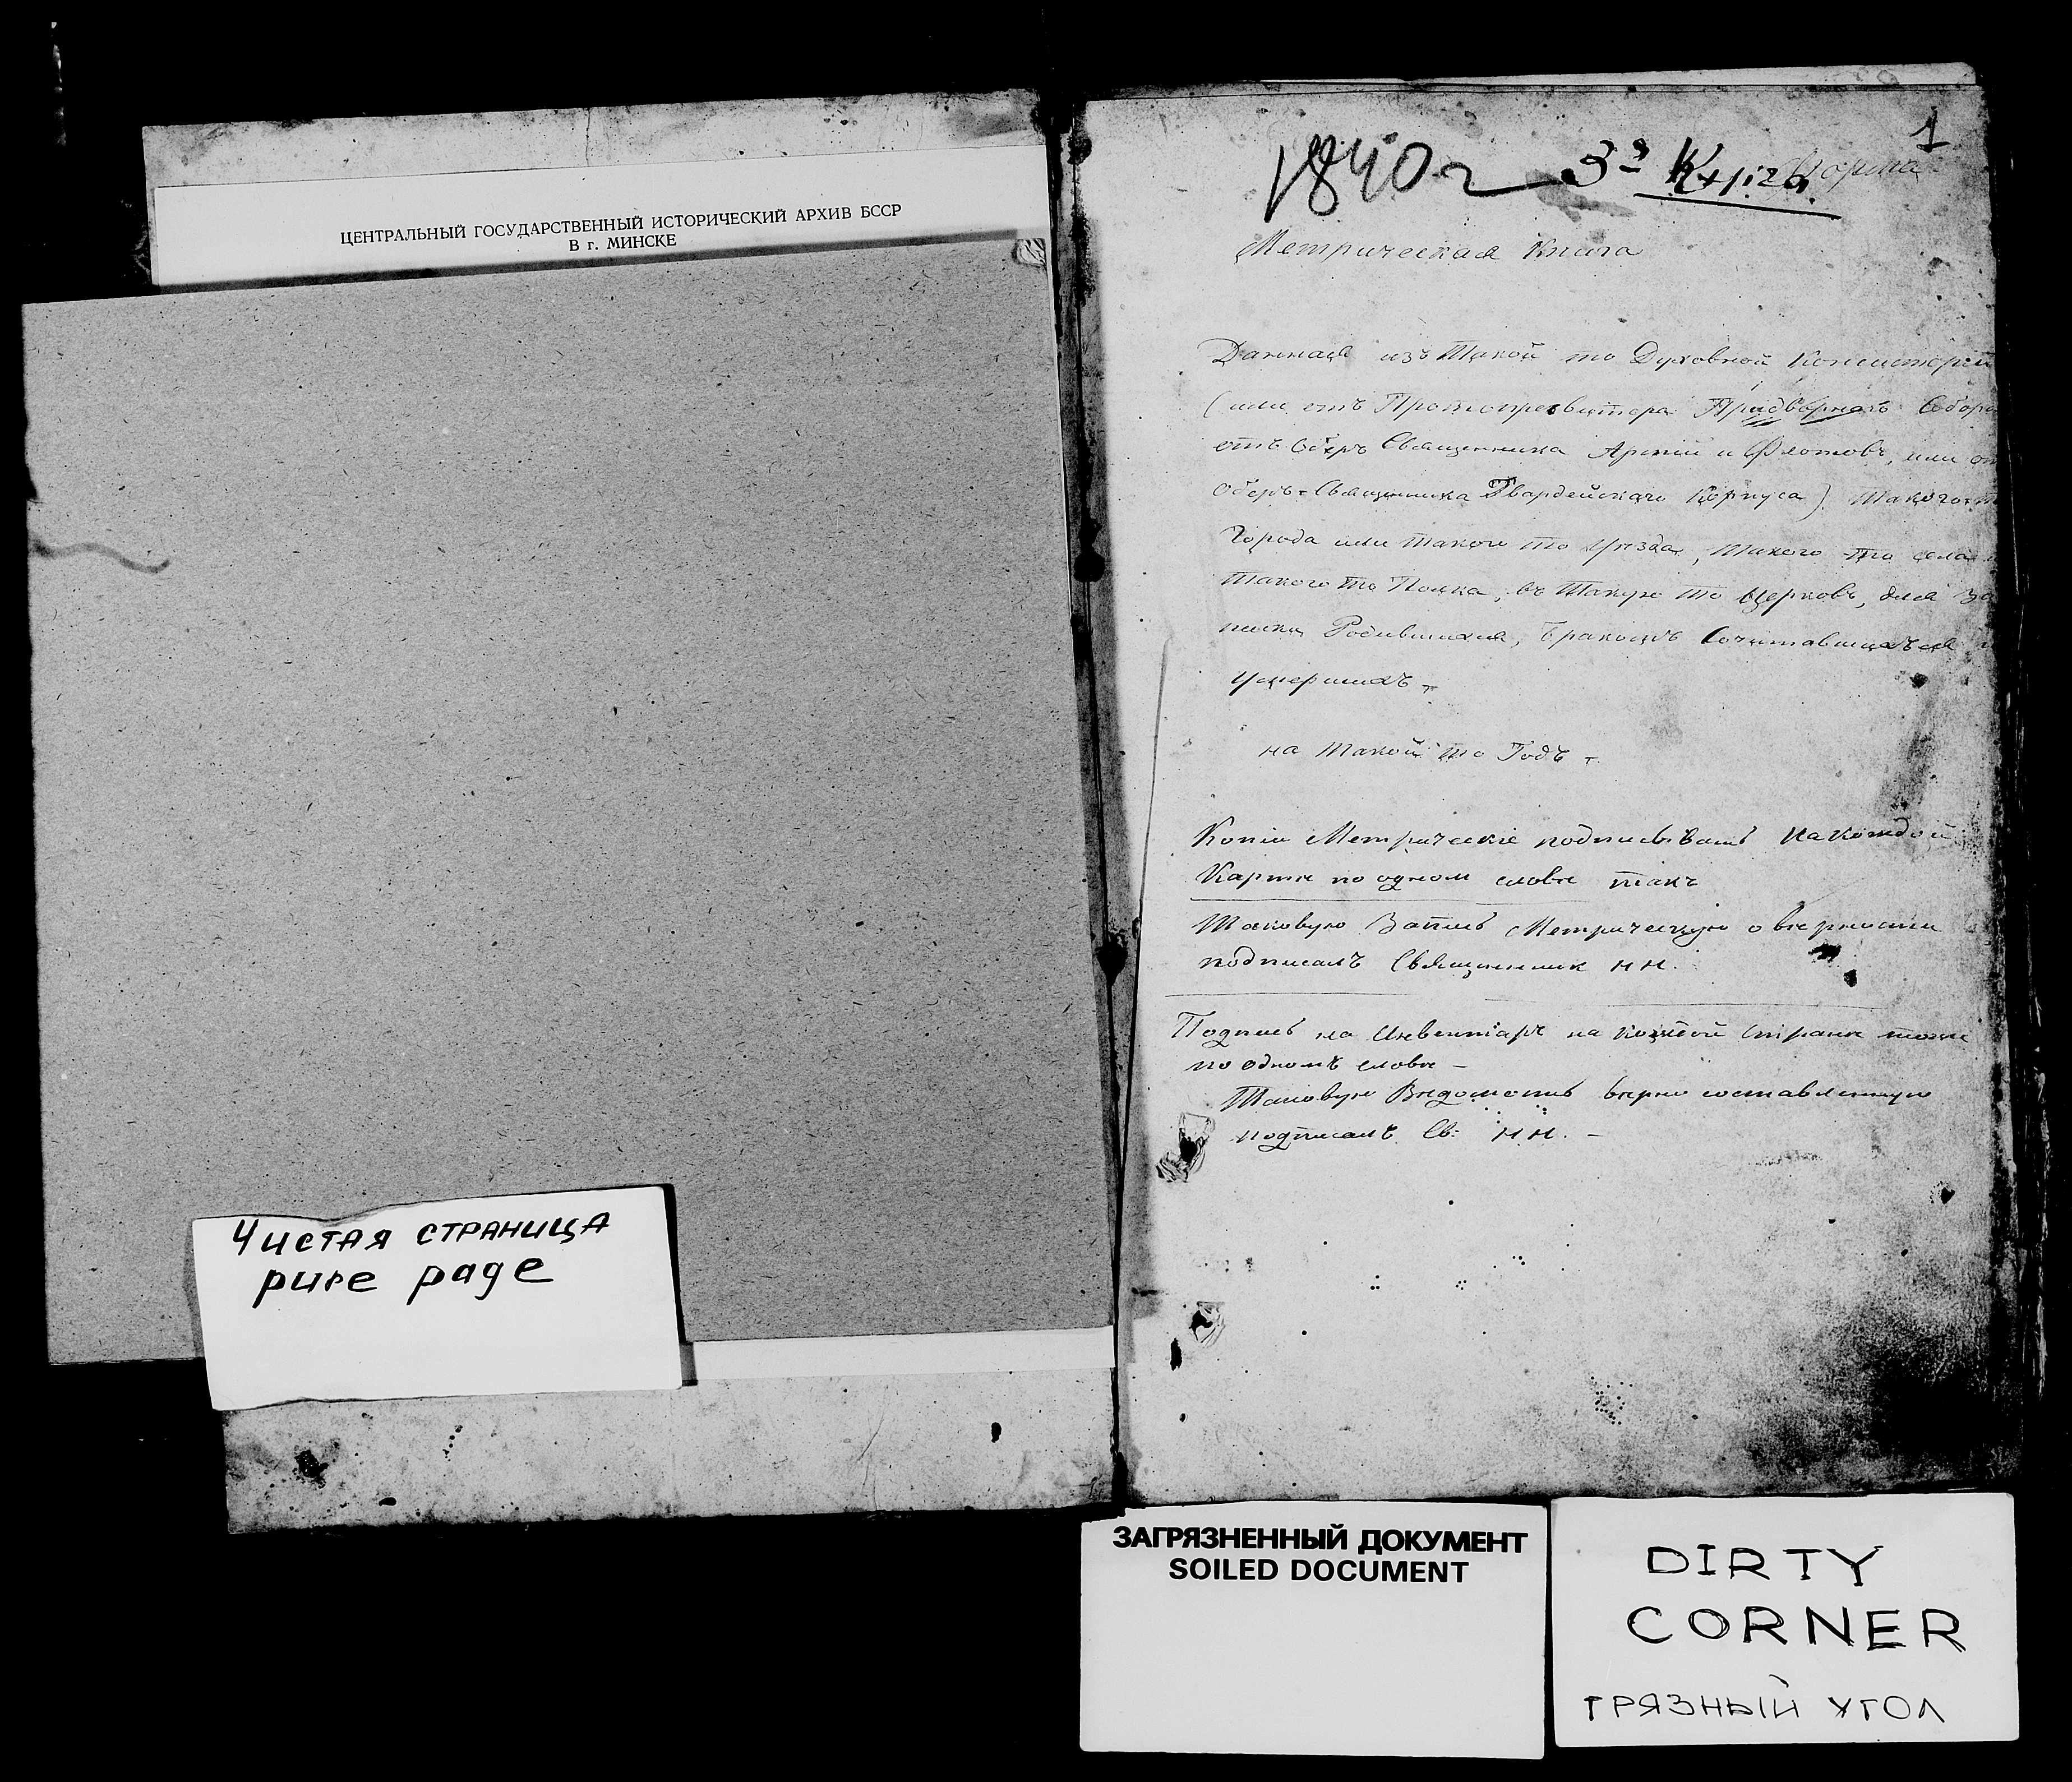 ЦЕНТРАЛЬНЫЙ ГОСУДАРСТВЕННЫЙ ИСТОРИЧЕСКИЙ АРХИВ БССР
В г. МИНСКЕ
Чистая страница
pure page
1
1840 г 3я Книга Форма
Метрическая Книга
Данная изъ Такой то Духовной Консисторіи
(или отъ Протопресвитера Придворнаго Собора
отъ Оберъ Священника Арміи и Флотовъ, или от
Оберъ-Священника Гвардейскаго Корпуса) Такого т
Города или такого то Уезда, такого то села
такого то Полка, въ Такую то Церковь, для за
писки Родившихся, Бракомъ Сочетавшихся и
умершихъ
на Такой то Годъ
Копіи Метрическіе подписывать на каждой
Карте по одном слове такъ
Таковую Запись Метрическую о верности
подписалъ Священник Н Н.
Подпись на Инвентаре на каждой стране тоже
по одномъ слове —
Таковую Ведомость верно составленную
подписалъ Св: Н.Н. —
ЗАГРЯЗНЕННЫЙ ДОКУМЕНТ
SOILED DOCUMENT
DIRTY
CORNER
ГРЯЗНЫЙ УГОЛ